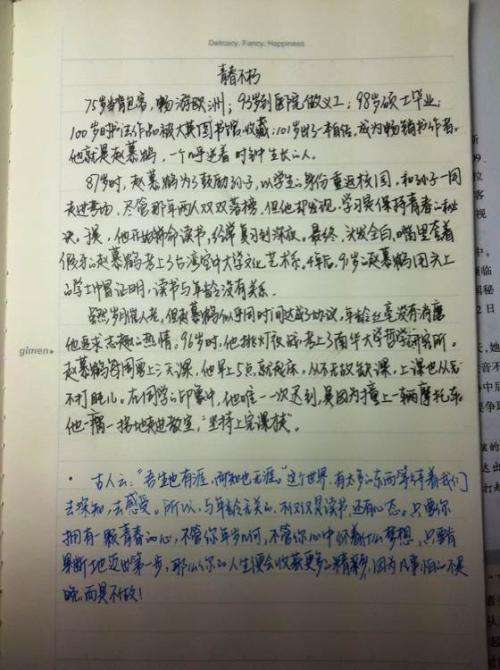 Delicacy. Fancy. Happiness
青春不朽
75岁当背包客,畅游欧洲;93岁到医院做义工;98岁硕士毕业;
100岁时书法作品被大英图书馆收藏;101岁出了本自传,成为畅销书作者。
他就是赵慕鹤,一个逆着时钟生长的人。
87岁时,赵慕鹤为了鼓励孙子,以学生的身份重返校园,和孙子一同
走进考场,尽管那年两人双双落榜,但他却发现,学习是保持青春的秘
诀。于是,他开始拼命读书,经常复习到深夜。最终,头发全白,嘴里套着
假牙的赵慕鹤考上了台湾空中大学文化艺术系。4年后,91岁的赵慕鹤用头上
的学士帽证明,读书与年龄没有关系。
虽然岁月催人老,但赵慕鹤似乎同时间达成了协议,年龄丝毫没有磨
他追求志趣的热情。96岁时,他挑灯夜战考上了南华大学哲学研究所。
赵慕鹤每周要上三天课,他早上5点就起床,从不无故缺课,上课也从
不打盹儿。在同学的印象中,他唯一一次迟到,是因为撞上一辆摩托车。
他一瘸一拐地走进教室,"坚持上完课
gimen
古人云:"吾生也有涯,而知也无涯。"这个世界,有太多的东西等待着我们
去求知,去感受。所以,与年龄无关的,不仅仅是读书,还有心态。只要你
拥有一颗青春的心,不管你年岁几何,不管你心中怀着什么梦想,只要肯
果断地迈出第一步,那么你的人生便会收获更多的精彩,因为凡事怕的不是
晚,而是不做!